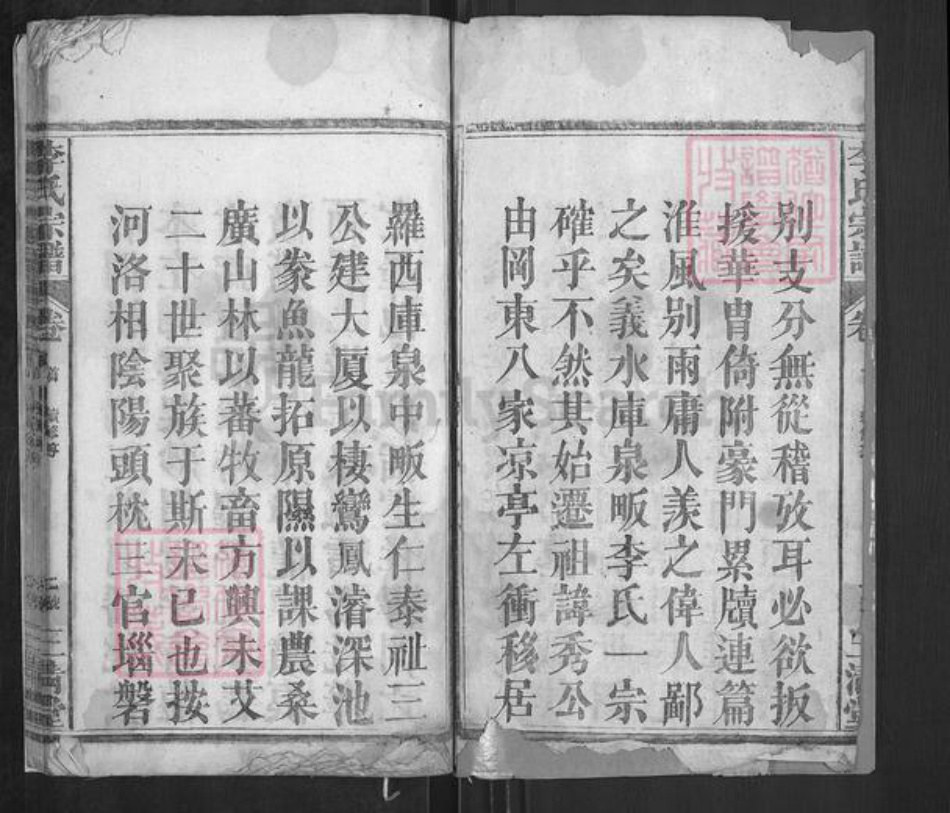 別支分無從稽攷耳必欲扳
援華胄倚附豪門累牘連篇
淮風别雨庸人羡之偉人鄙
之矣義水庫泉畈李氏一宗
確乎不然其始遷祖諱秀公
由岡東八家凉亭左衝移居
羅西庫泉中畈生仁泰祉三
公建大厦以棲鸞鳳濬深池
以豢魚龍拓原隰以課農桑
廣山林以蕃牧畜方興未艾
二十世聚族于斯未已也按
河洛相陰陽頭枕三官堖磐
李氏宗譜